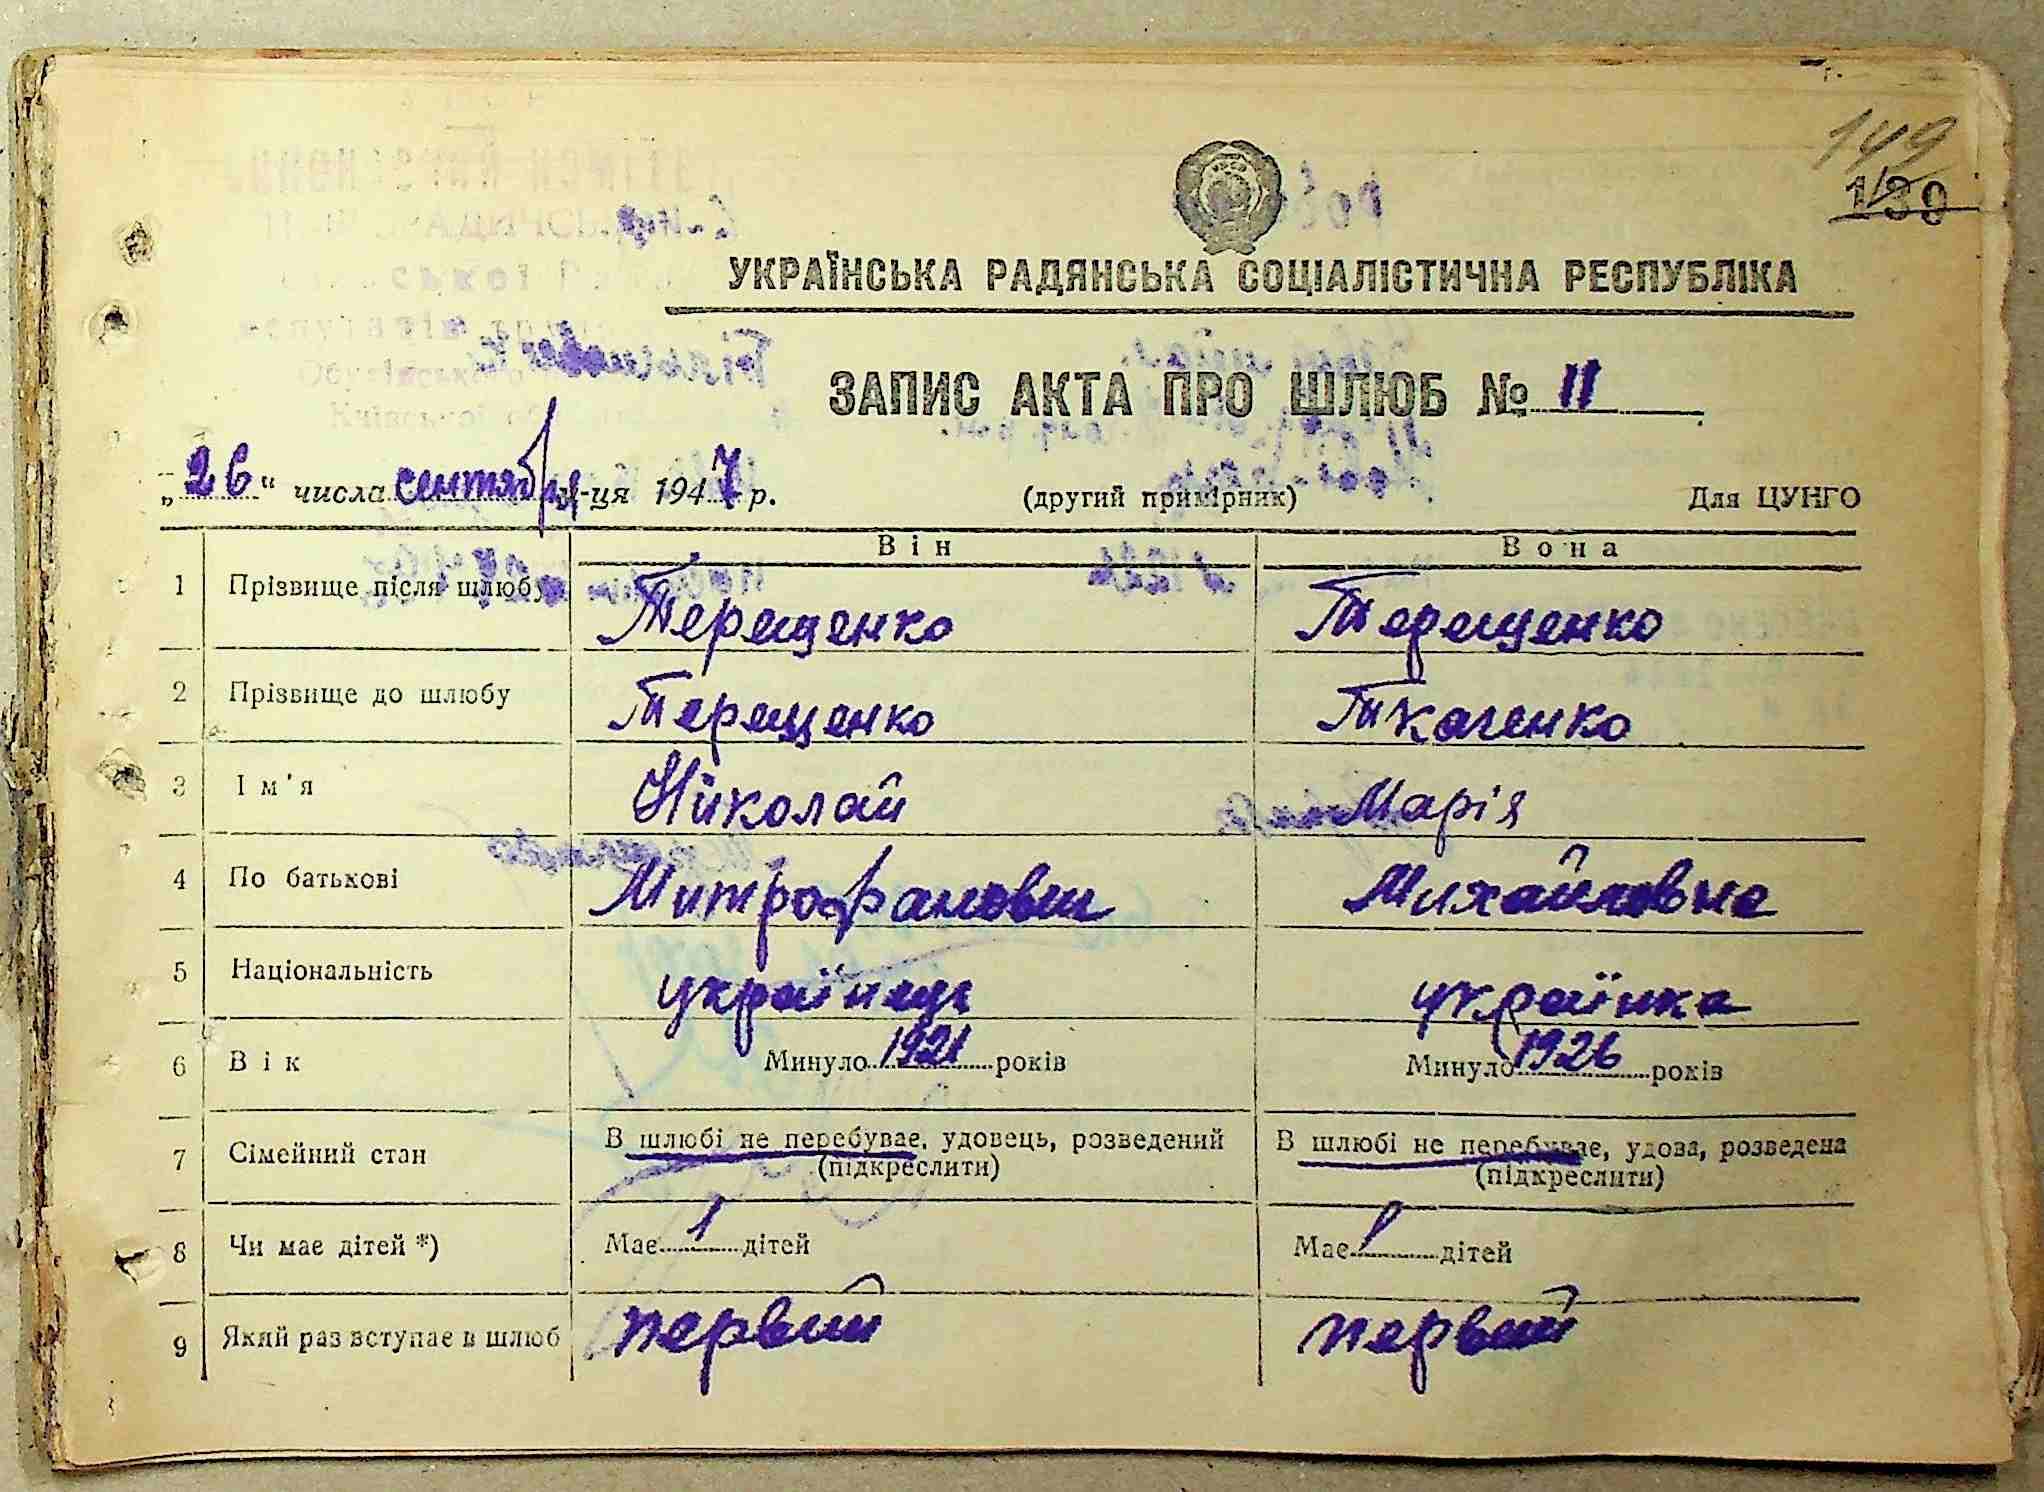 149
130
УКРАЇНСЬКА РАДЯНСЬКА СОЦІАЛІСТИЧНА РЕСПУБЛІКА
ЗАПИС АКТА ПРО ШЛЮБ № 11
„26“ числа сентября м-ця 1947 р. (другий примірник) Для ЦУНГО
Він Вона
1 Прізвище після шлюбу Терещенко Терещенко
2 Прізвище до шлюбу Терещенко Ткаченко
3 Ім'я Николай Марія
4 По батькові Митрофанович Михайловна
5 Національність українець українка
6 Вік Минуло 1921 років Минуло 1926 років
7 Сімейний стан В шлюбі не перебуває, удовець, розведений В шлюбі не перебуває, удова, розведена
(підкреслити) (підкреслити)
8 Чи має дітей *) Має 1 дітей Має 1 дітей
9 Який раз вступає в шлюб первий первий